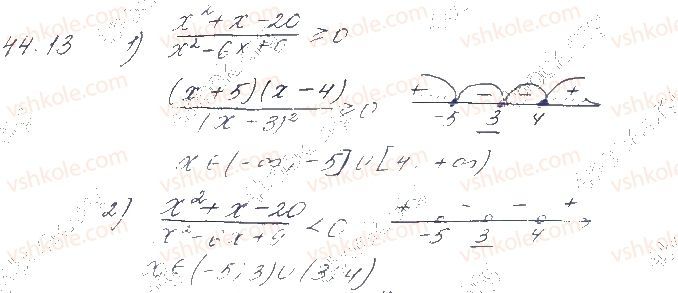 44.13 1) (x² + x - 20)/(x² - 6x + 9) ≥ 0
((x + 5)(x - 4))/((x - 3)²) ≥ 0
+ - - +
-5 3 4
x ∈ (-∞; -5] ∪ [4; +∞)
2) (x² + x - 20)/(x² - 6x + 9) < 0
+ - - +
-5 3 4
x ∈ (-5; 3) ∪ (3; 4)
vshkole.com